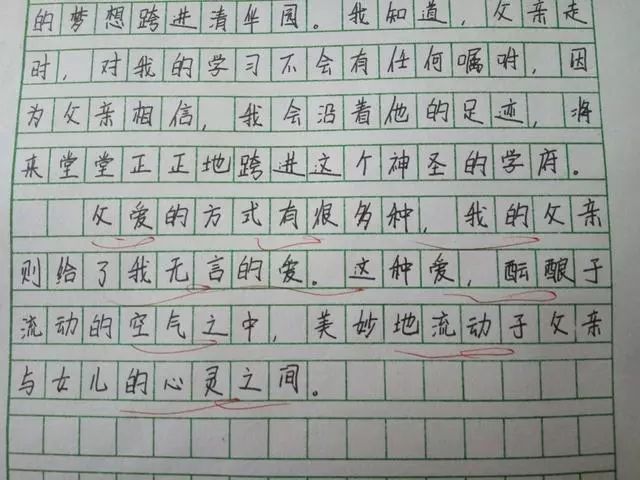 的梦想跨进清华园。我知道，父亲走
时，对我的学习不会有任何嘱咐，因
为父亲相信，我会沿着他的足迹，将
来堂堂正正地跨进这个神圣的学府。
父爱的方式有很多种，我的父亲
则给了我无言的爱。这种爱，酝酿于
流动的空气之中，美妙地流动于父亲
与女儿的心灵之间。